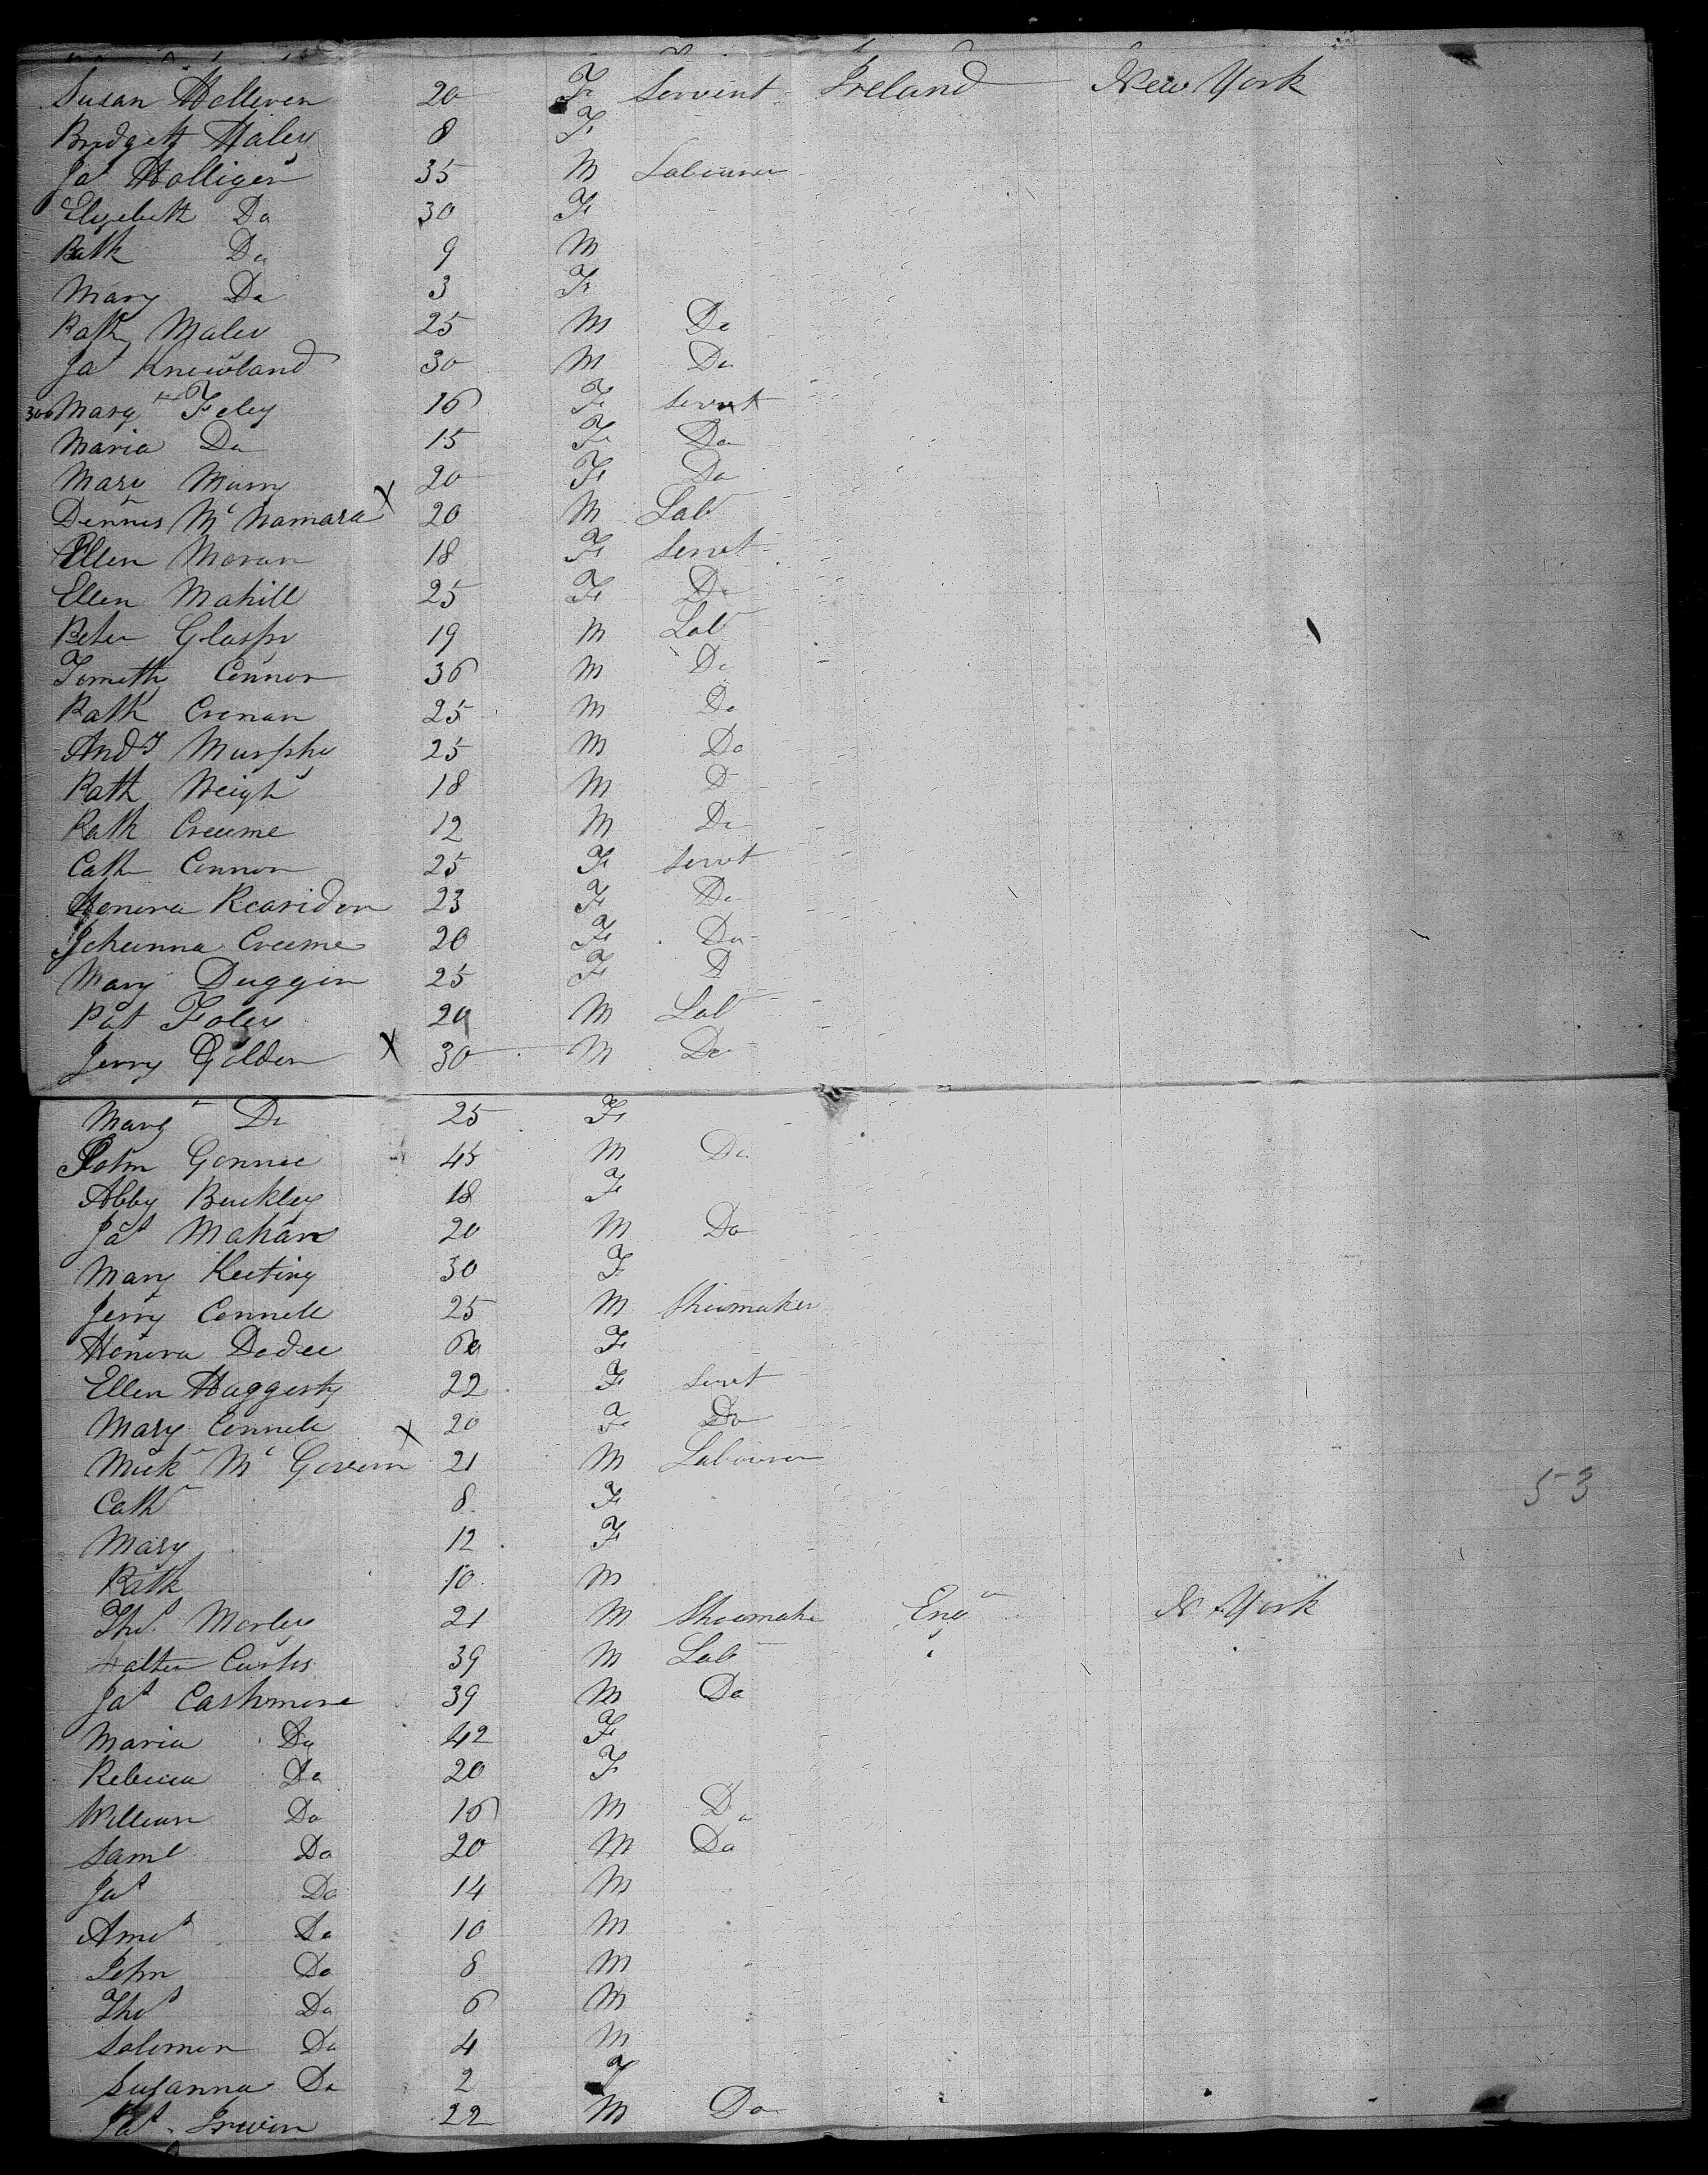 Susan Holliven 20 F Servent Ireland New York
Bridget Haley 8 F
Jas Holligen 35 M Labourer
Elizebeth Do 30 F
Patk Do 9 M
Mary Do 3 F
Patk Maley 25 M Do
Jas Knewland 30 M Do
300 Margt Feley 16 F Servt
Maria Do 15 F Do
Mary Murry 20 F Do
Dennis McNamara X 20 M Lab
Ellen Moran 18 F Servt
Ellen Mahill 25 F Do
Peter 19 M Lab
Tomoth Connor 36 M Do
Patk Cronan 25 M Do
Andw Murphy 25 M Do
Patk 18 M D
Patk Creeme 12 M Do
Cath Connor 25 F Servt
Honora Rearidon 23 F Do
Johanna Creeme 20 F Do
Mary Duggin 25 F D
Pat Foley 29 M Lab
Jerry Golden X 30 M Do
Marg Do 25 F
John 45 M Do
Abby Buckley 18 F
Jas Mahan 20 M Do
Mary Keeting 30 F
Jerry Connell 25 M Shoemaker
Honora F
Ellen Haggerty 22 F Servt
Mary Connell 20 F Do
Mick McGovern X 21 M Labourer
Cath 8 F
53
Mary 12 F
Patk 10 M
Thos Morley 21 M Shoemaker Eng N York
Walter Curtis 39 M Lab
Jas Cashmore 39 M Do
Maria Do 42 F
Rebecca Do 20 F
William Do 16 M Do
Saml Do 20 M Do
Jas Do 14 M
Amos Do 10 M
John Do 8 M
Thos Do 6 M
Solomon Do 4 M
Susanna Do 2 F
Jas Irwin 22 M Do